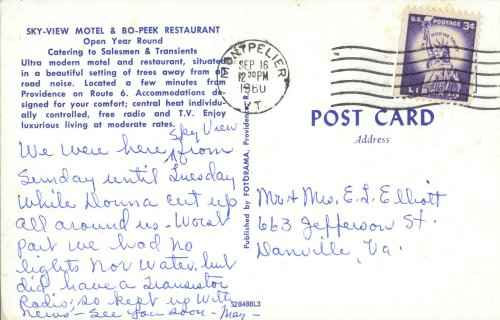 SKY-VIEW MOTEL & BO-PEEK RESTAURANT
Open Year Round
Catering to Salesmen & Transients
Ultra modern motel and restaurant, situated
in a beautiful setting of trees away from
road noise. Located a few minutes from
Providence on Route 6. Accommodations de-
signed for your comfort; central heat individu-
ally controlled, free radio and T.V. Enjoy
luxurious living at moderate rates.
Sky View
We were here from
Sunday until Tuesday
While Donna cut up
all around us - Worst
part we had no
lights nor water, but
did have a Transistor
Radio, so kept up with
news - See you soon - May -
Published by FOTORAMA, Providence, R.
S28488L3
MONTPELIER
SEP 16
12 30 PM
1960
VT
U.S. POSTAGE 3¢
POST CARD
Address
Mr & Mrs. E. L. Elliott
663 Jefferson St.
Danville, Va.